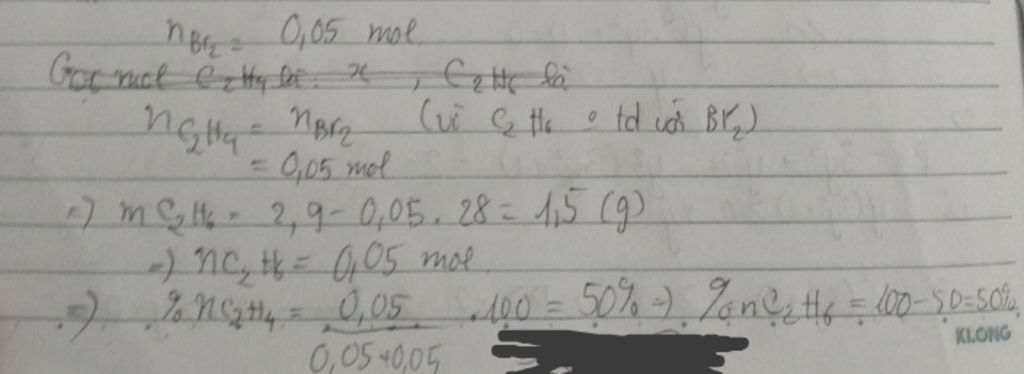 nBr₂ = 0,05 mol
Gọi mol C₂H₄ là: x , C₂H₆ là
nC₂H₄ = nBr₂ (vì C₂H₆ o td với Br₂)
= 0,05 mol
=) mC₂H₆ = 2,9 - 0,05 . 28 = 1,5 (g)
=) nC₂H₆ = 0,05 mol
=) % nC₂H₄ = 0,05 / 0,05 + 0,05 . 100 = 50% =) % nC₂H₆ = 100 - 50 = 50%
KLONG